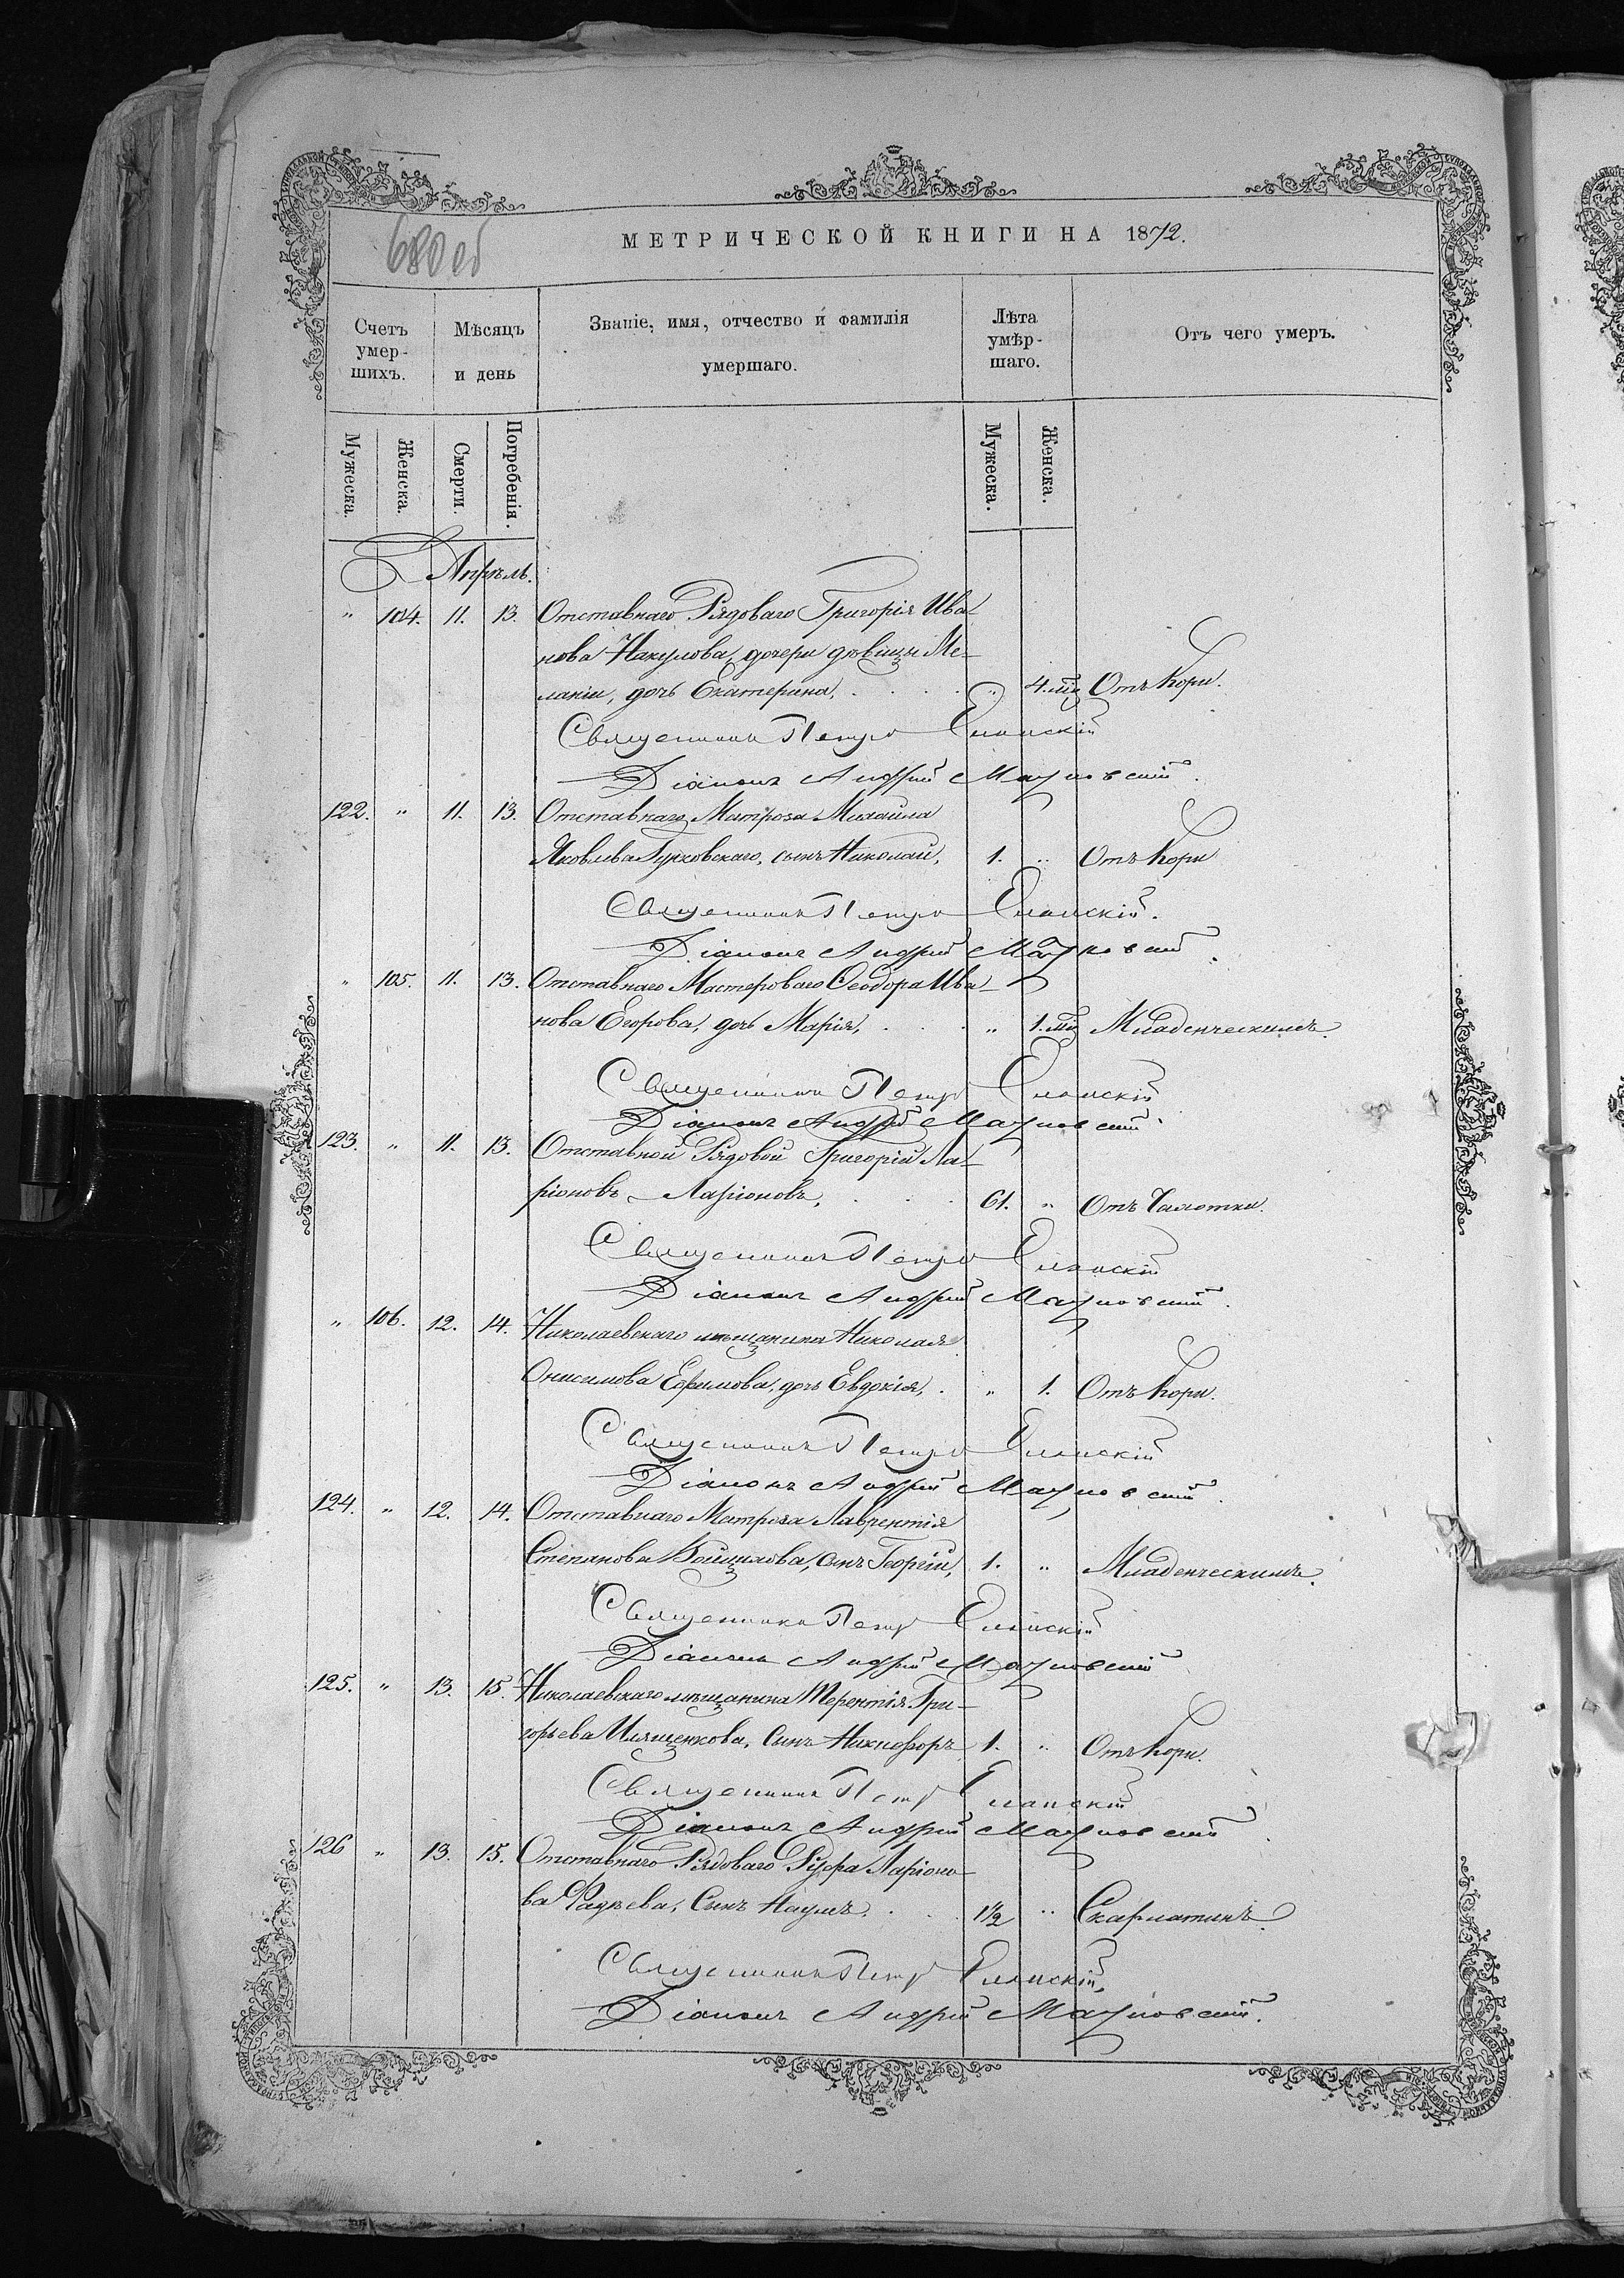 680об
МЕТРИЧЕСКОЙ КНИГИ НА 1872.
Счетъ умер-шихъ. Мѣсяцъ и день Званіе, имя, отчество и фамилія умершаго. Лѣта умѣр-шаго. Отъ чего умеръ.
Мужеска. Женска. Смерти. Погребенія. Мужеска. Женска.
Апрѣль.
" 104. 11. 13. Отставнаго Рядоваго Григорія Ива-
нова Накулова, дочери дѣвицы Ме-
ланіи, дочь Екатерина, " 4. Отъ Кори.
Священникъ Петръ Еланскій
Діаконъ Андрей
122. " 11. 13. Отставнаго Матроза Михаила
Яковлева Гурковскаго, сынъ Николай, 1. " Отъ Кори
Священникъ Петръ Еланскій.
Діаконъ Андрей
" 105. 11. 13. Отставнаго Мастероваго Ѳеодора Ива-
нова Егорова, дочь Марія, " 1. Младенческимъ.
Священникъ Петръ Еланскій
Діаконъ Андрей
123. " 11. 13. Отставной Рядовой Григорій Ла-
ріоновъ Ларіоновъ, 61. " Отъ Чахотки.
Священникъ Петръ Еланскій
Діаконъ Андрей
" 106. 12. 14. Николаевскаго мѣщанина Николая
Онисимова Ефимова, дочь Евдокія, " 1. Отъ Кори.
Священникъ Петръ Еланскій
Діаконъ Андрей
124. " 12. 14. Отставнаго Матроза Лаврентія
Степанова сынъ Георгій, 1. " Младенческимъ.
Священникъ Петръ Еланскій
Діаконъ Андрей
125. " 13. 15. Николаевскаго мѣщанина Терентія Гри-
горьева Илященкова, Сынъ Никифоръ 1. " Отъ Кори.
Священникъ Петръ Еланскій
Діаконъ Андрей
126 " 13. 15. Отставнаго Рядоваго Руфа Ларіоно-
ва Фадѣева, Сынъ Наумъ. 1½ " Скарлатинъ.
Священникъ Петръ Еланскій,
Діаконъ Андрей